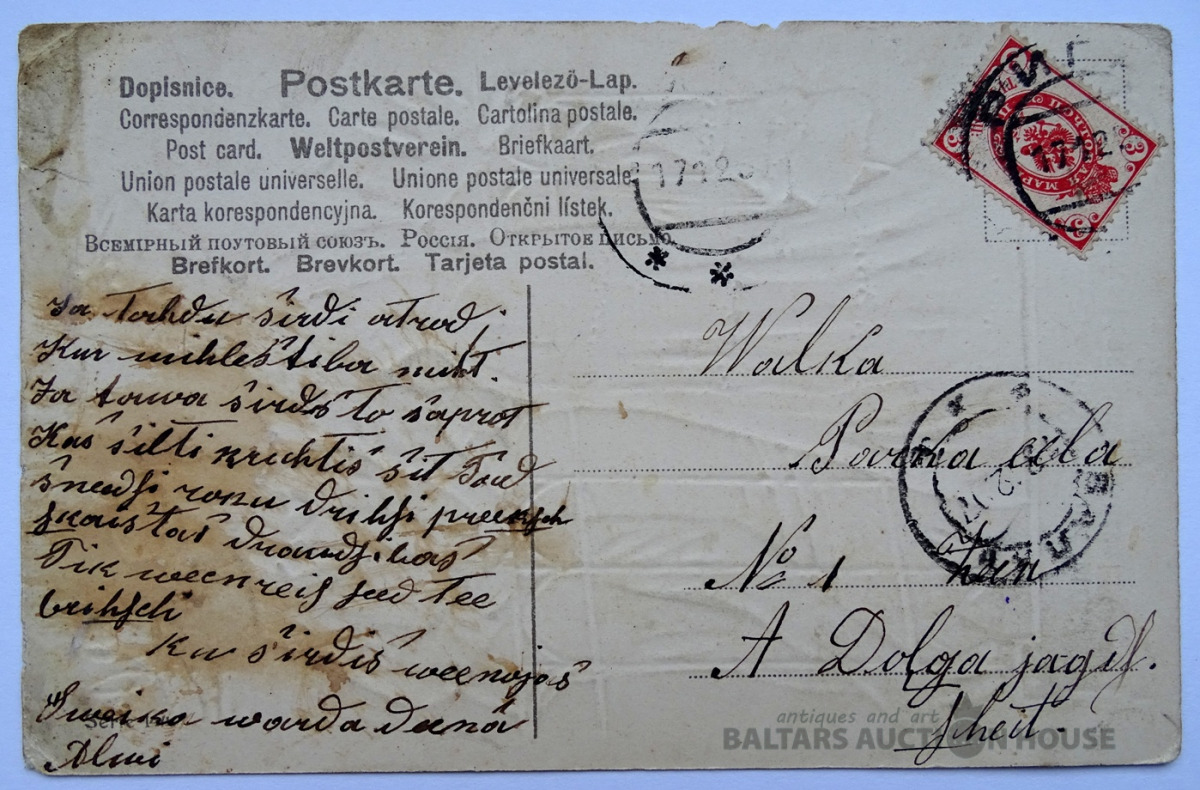 Dopisnice. Postkarte. Levelezö-Lap.
Correspondenzkarte. Carte postale. Cartolina postale.
Post card. Weltpostverein. Briefkaart.
Union postale universelle. Unione postale universale
Karta korespondencyjna. Korespondenčni lístek.
Всемірный поутовый союзъ. Россія. Открытое письмо
Brefkort. Brevkort. Tarjeta postal.
171220
1712
Ja tahdu śirdi atrod
Kur mihleśtiba miht.
Ja tawa śirds to saprot
Kaś śilti kruhtiś śit Tad
śneedsi roku drihsi preeksch
skaistas draudsibas
Tik ween reis seed tee
brihschi
Kur śirdis weenojas
Sweika warda deenā
Alwi
Walka
N<sup>o</sup> 1
A Dolga jagdł.
antiques and art
BALTARS AUCTION HOUSE